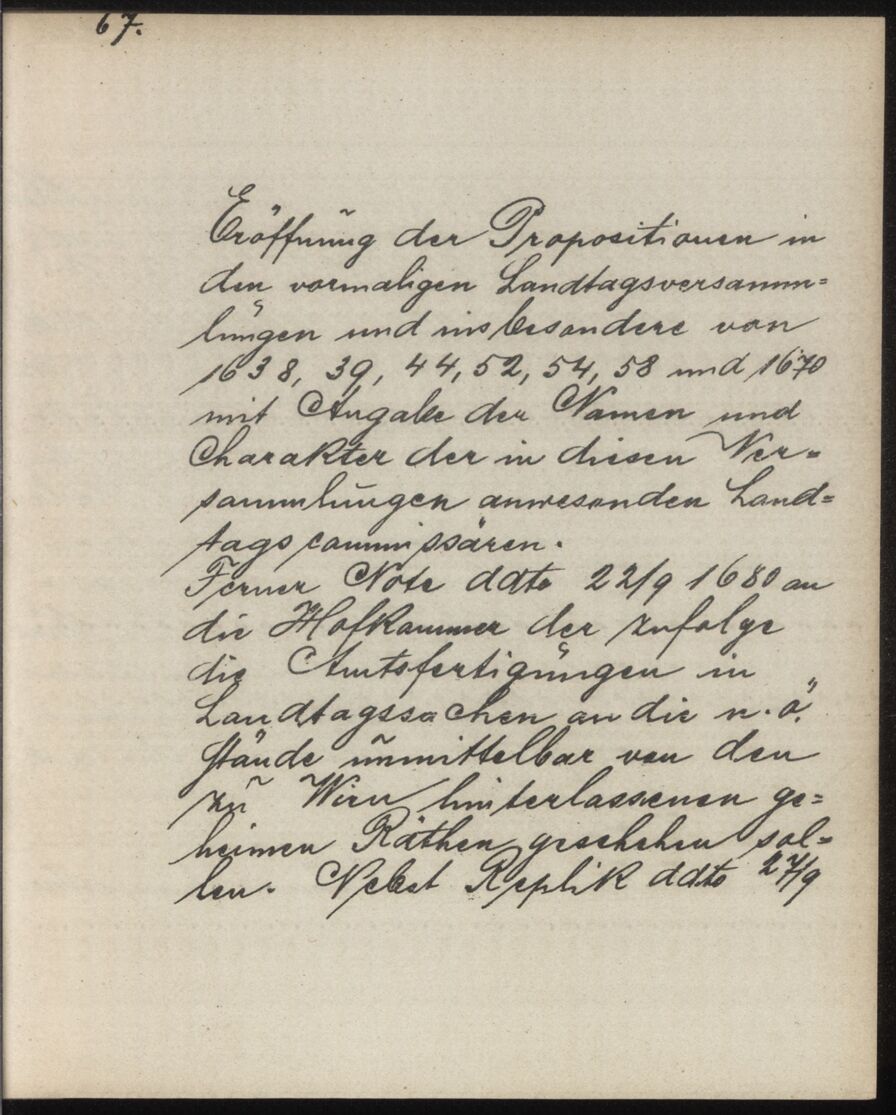 67.
Eröffnung der Propositionen in
den vormaligen Landtagsversamm=
lungen und insbesondere von
1638, 39, 44, 52, 54, 58 und 1670
mit Angabe der Namen und
Charakter der in diesen Ver=
sammlungen anwesenden Land=
tagscommissären.
Ferner Note ddto 22/9 1680 an
die Hofkammer der zufolge
die Amtsfertigungen in
Landtagssachen an die n. ö.
Stände unmittelbar von den
zu Wien hinterlassenen ge=
heimen Räthen geschehen sol=
len. Nebst Replik ddto 27/9